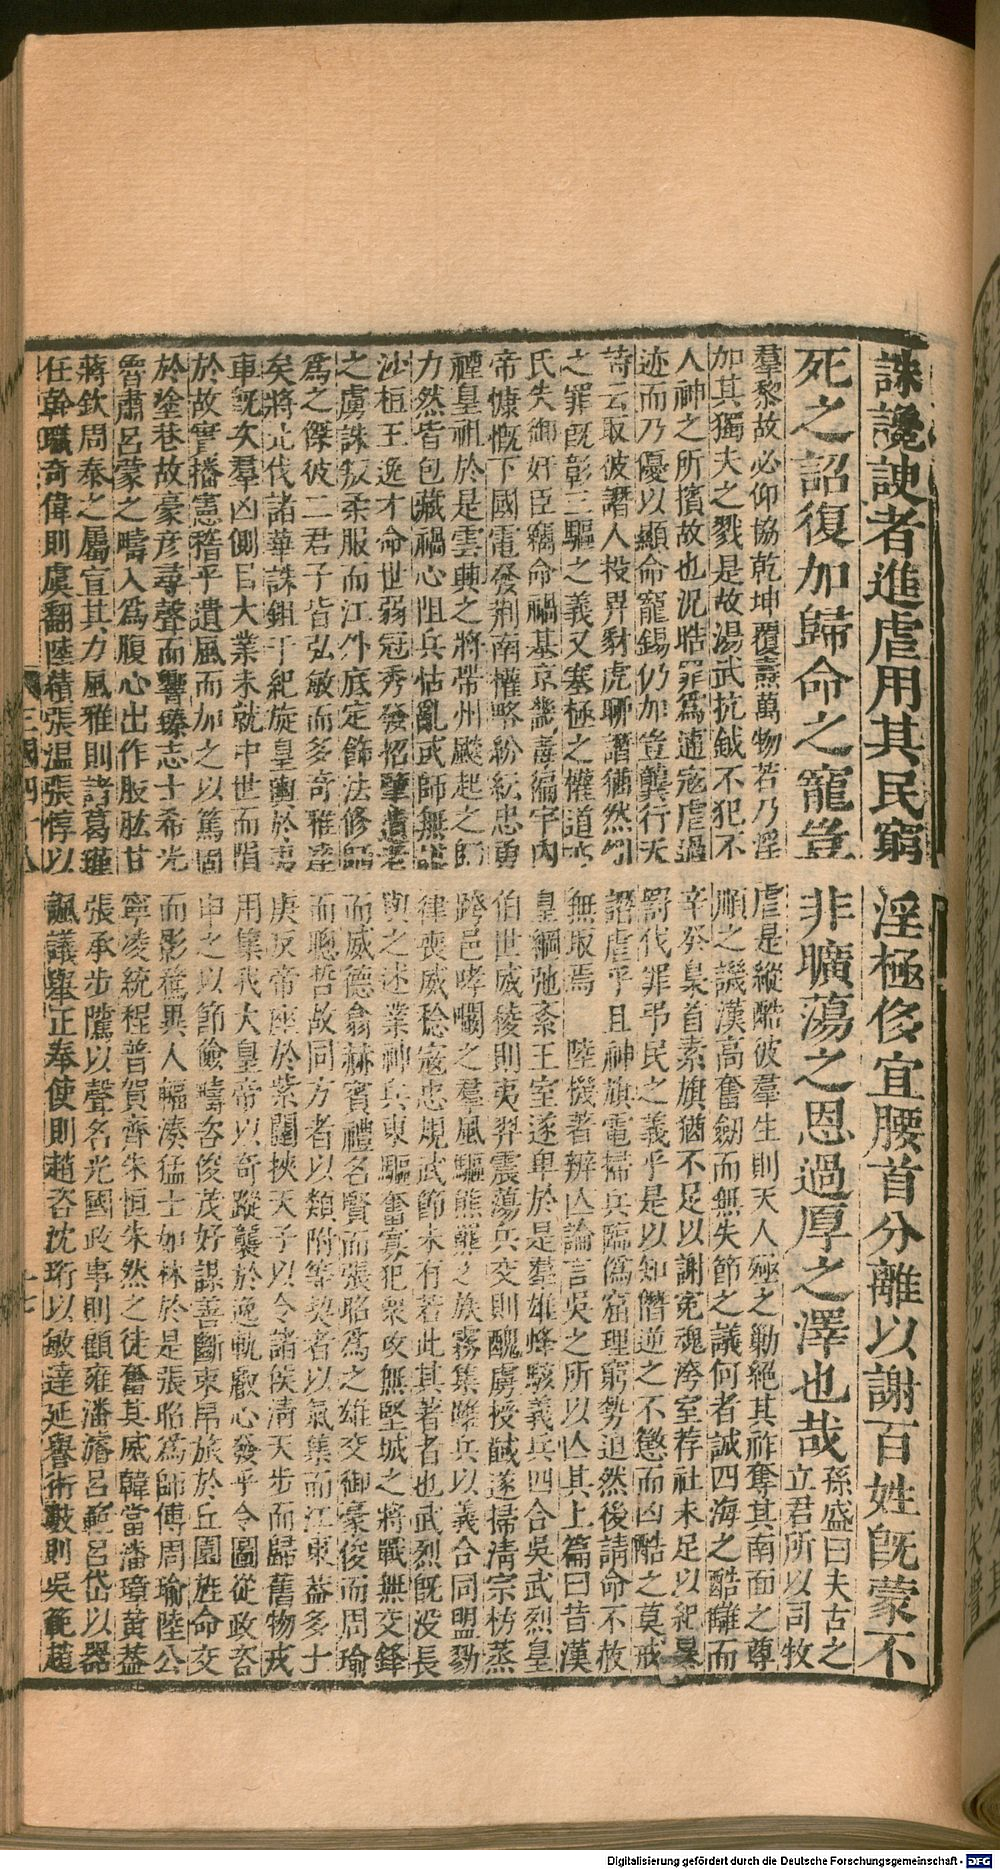 誅讒諛者進虐用其民窮淫極侈宜腰首分離以謝百姓旣蒙不
死之詔復加歸命之寵豈非曠蕩之恩過厚之澤也哉
孫盛曰夫古之
立君所以司牧
羣黎故必仰協乾坤覆燾萬物若乃淫虐是縱酷彼羣生則天人殛之勦絕其祚奪其南面之尊
加其獨夫之戮是故湯武抗鉞不犯不順之譏漢高奮劒而無失節之議何者誠四海之酷讎而
人神之所擯故也況晧罪爲逋寇虐過辛癸梟首素旗猶不足以謝冤魂洿室荐社未足以紀暴
迹而乃優以顯命寵錫仍加豈龔行天罰伐罪弔民之義乎是以知僭逆之不懲而凶酷之莫戒
詩云取彼譖人投畀豺虎聊譖猶然矧譖虐乎且神旗電掃兵臨僞窟理窮勢迫然後請命不赦
之罪旣彰三驅之義又塞極之權道亦無取焉　陸機著辨亾論言吳之所以亾其上篇曰昔漢
氏失御奸臣竊命禍基京畿毒徧宇內皇綱弛紊王室遂卑於是羣雄蜂駭義兵四合吳武烈皇
帝慷慨下國電發荆南權略紛紜忠勇伯世威稜則夷羿震蕩兵交則醜虜授馘遂掃清宗祊蒸
禋皇祖於是雲興之將帶州飇起之師跨邑哮闞之羣風驅熊羆之族霧集雖兵以義合同盟勠
力然皆包藏禍心阻兵怙亂或師無謀律喪威稔寇忠規武節未有若此其著者也武烈旣沒長
沙桓王逸才命世弱冠秀發招攬遺老與之述業神兵東驅奮寡犯衆攻無堅城之將戰無交鋒
之虜誅叛柔服而江外底定飾法修師而威德翕赫賓禮名賢而張昭爲之雄交御豪俊而周瑜
爲之傑彼二君子皆弘敏而多奇雅達而聰哲故同方者以類附等契者以氣集而江東蓋多士
矣將北伐諸華誅鉏干紀旋皇輿於夷庚反帝座於紫闥挾天子以令諸侯清天步而歸舊物戎
車旣次羣凶側目大業未就中世而隕用集我大皇帝以奇蹤襲於逸軌叡心發乎令圖從政咨
於故實播憲稽乎遺風而加之以篤固申之以節儉疇咨俊茂好謀善斷東帛旅於丘園旌命交
於塗巷故豪彥尋聲而響臻志士希光而影騖異人輻湊猛士如林於是張昭爲師傅周瑜陸公
魯肅呂蒙之疇入爲腹心出作股肱甘寧凌統程普賀齊朱桓朱然之徒奮其威韓當潘璋黃蓋
蔣欽周泰之屬宣其力風雅則諸葛瑾張承步隲以聲名光國政事則顧雍潘濬呂範呂岱以器
任幹職奇偉則虞翻陸績張温張惇以諷議舉正奉使則趙咨沈珩以敏達延譽術數則吳範趙
三國四十八
十七
Digitalisierung gefördert durch die Deutsche Forschungsgemeinschaft - DFG